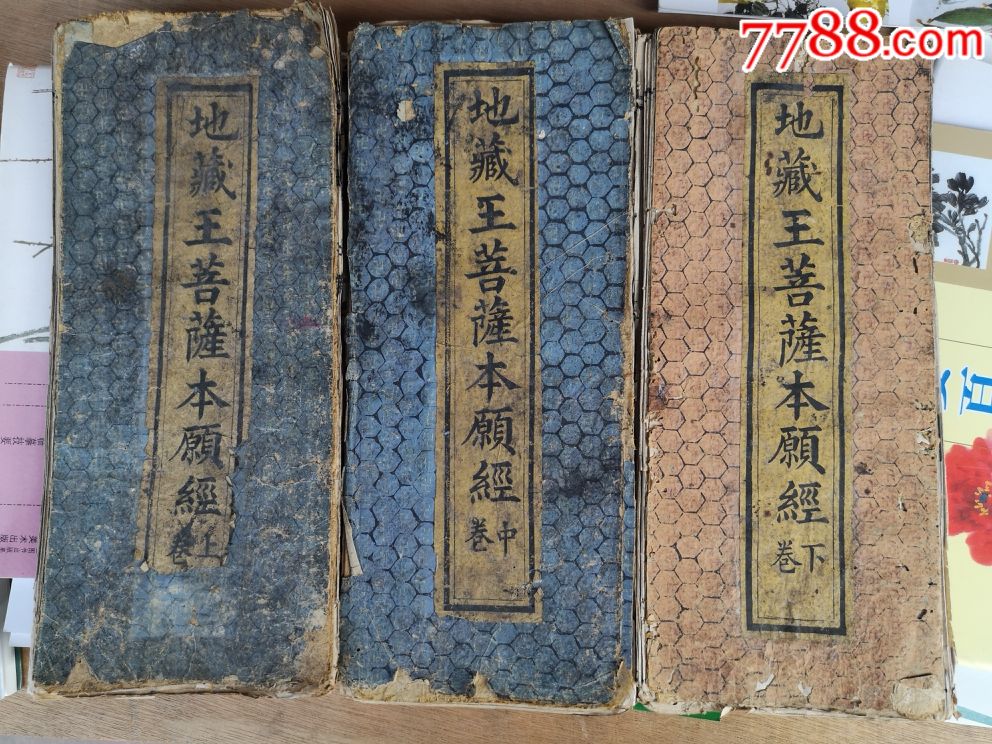 7788.com
地藏王菩薩本願經
上卷
地藏王菩薩本願經
中卷
地藏王菩薩本願經
下卷